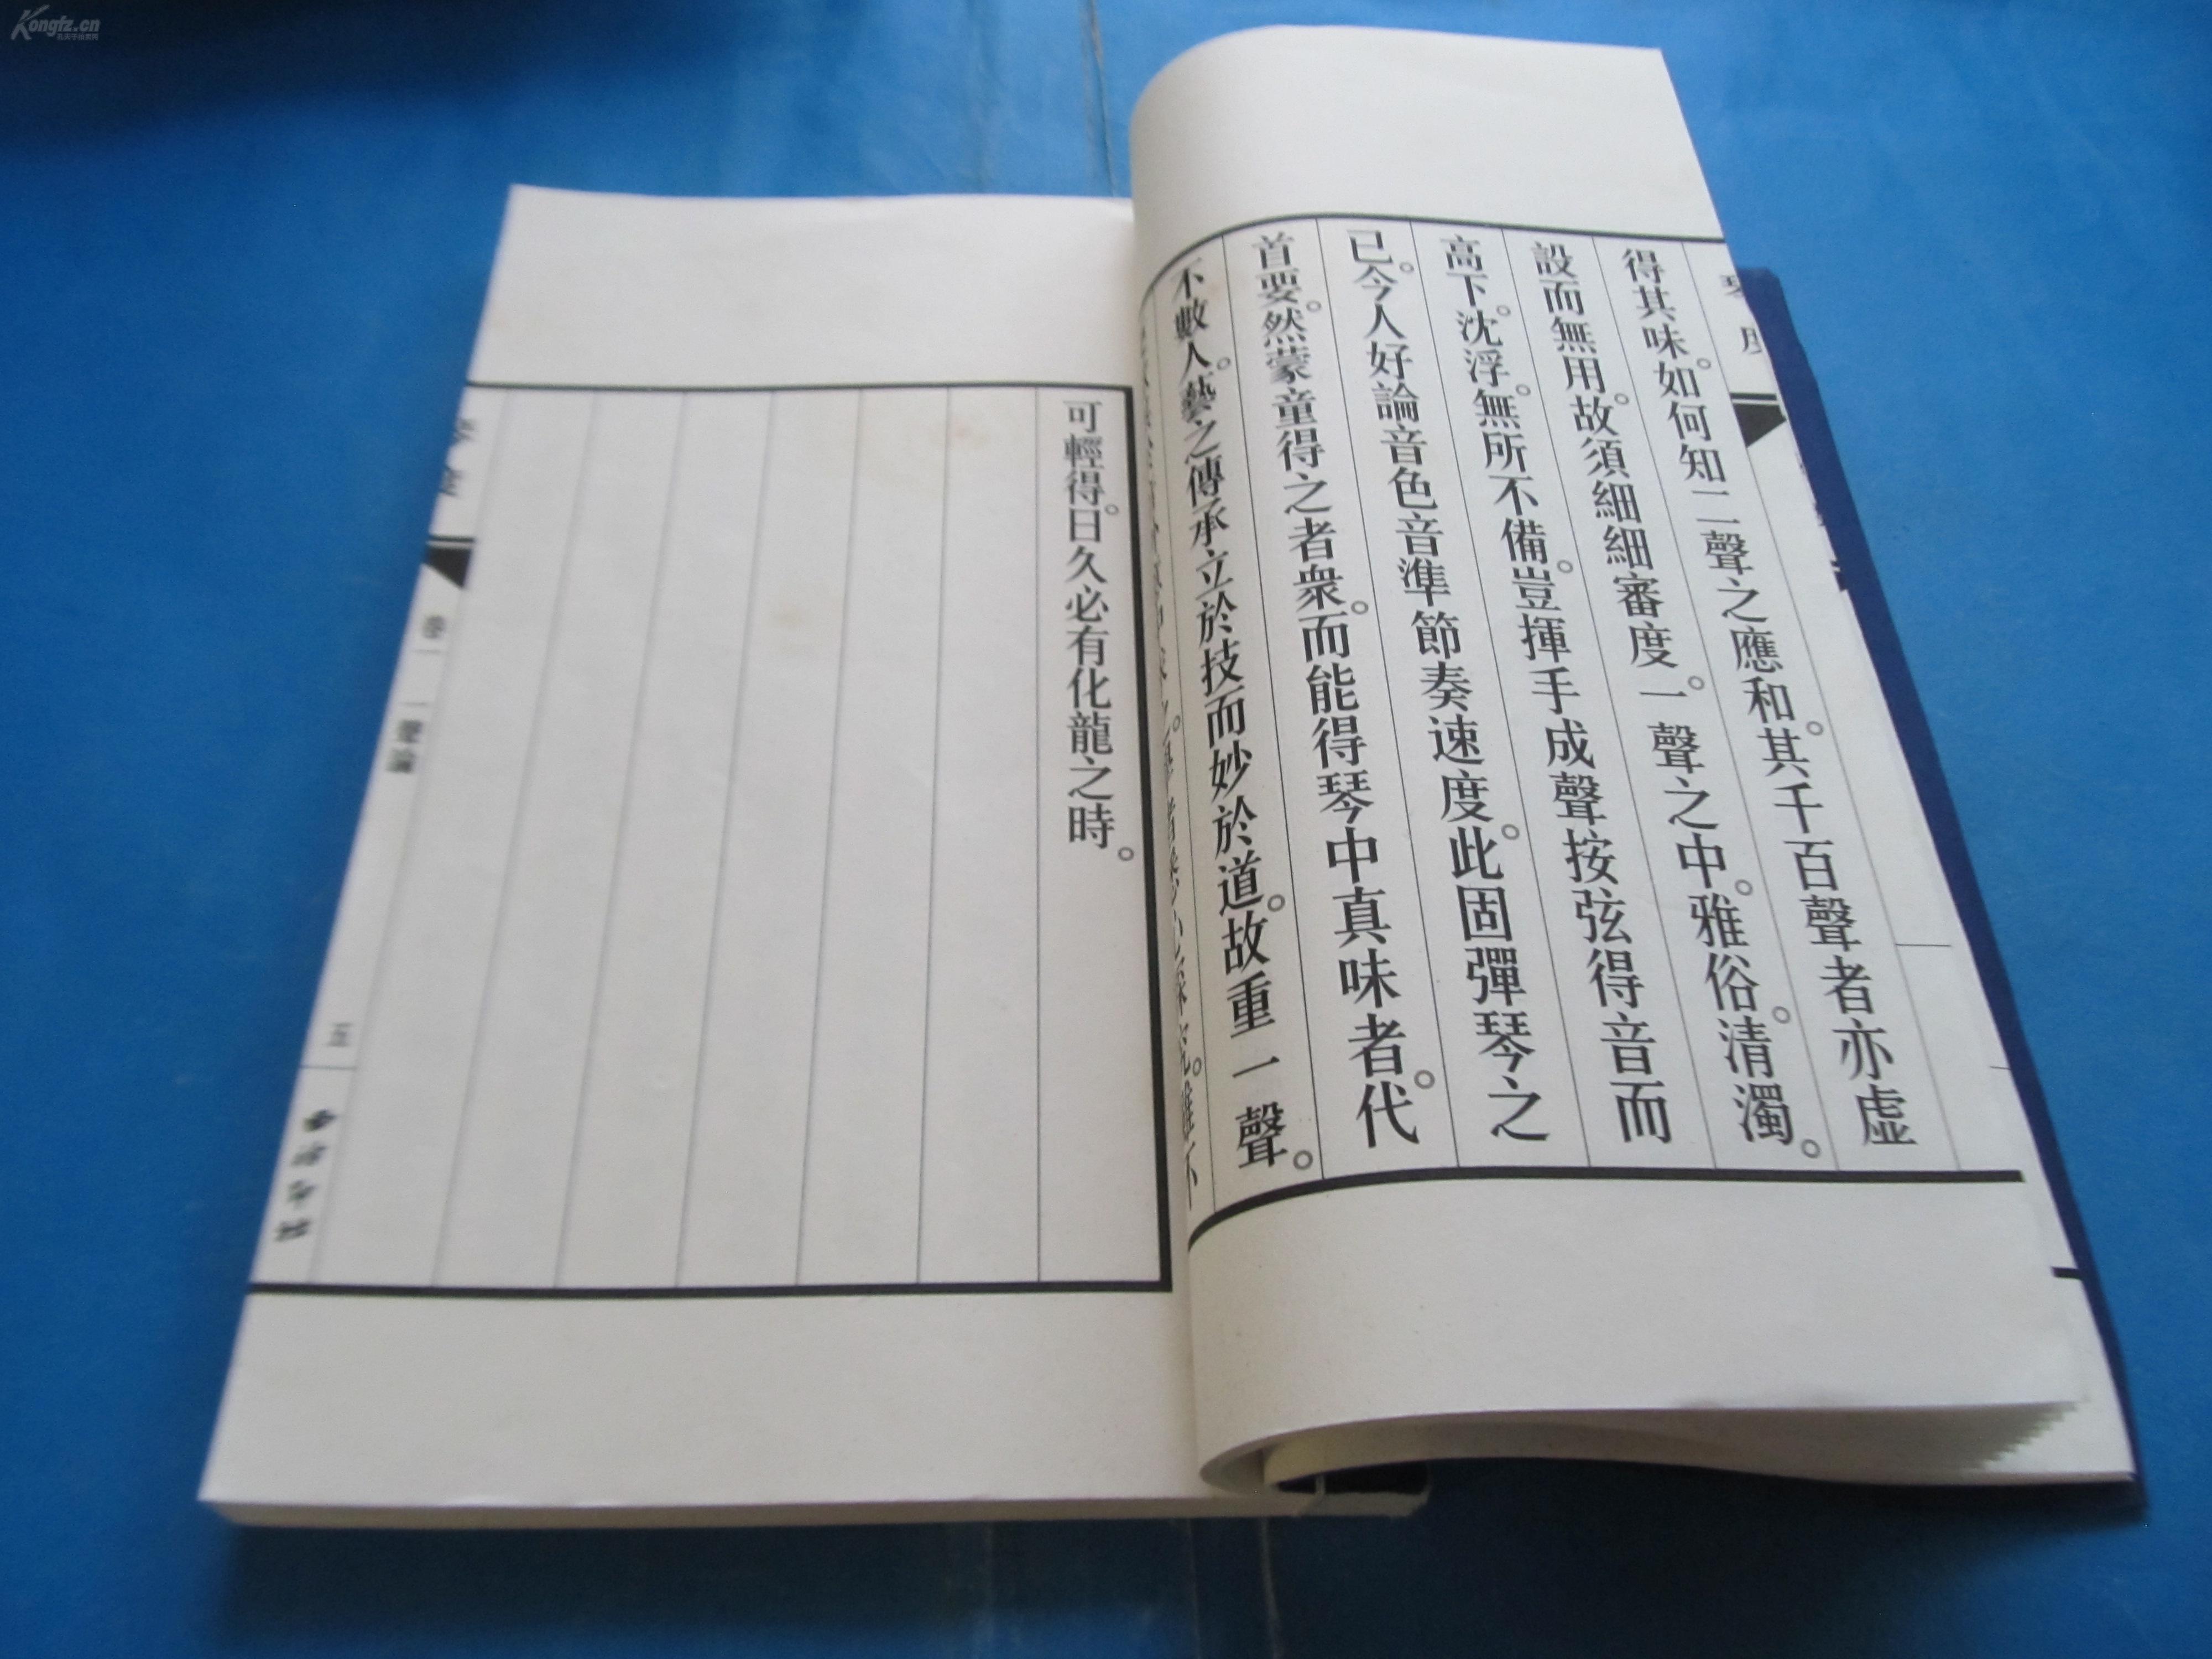 得其味。如何知二聲之應和。其千百聲者亦虛
設而無用。故須細細審度。一聲之中。雅俗。清濁。
高下。沈浮。無所不備。豈揮手成聲按弦得音而
已。今人好論音色音準節奏速度。此固彈琴之
首要。然蒙童得之者衆。而能得琴中真味者。代
不數人。藝之傳承立於技而妙於道。故重一聲。
可輕得。日久必有化龍之時。
卷一 一聲論
五
Kongfz.cn